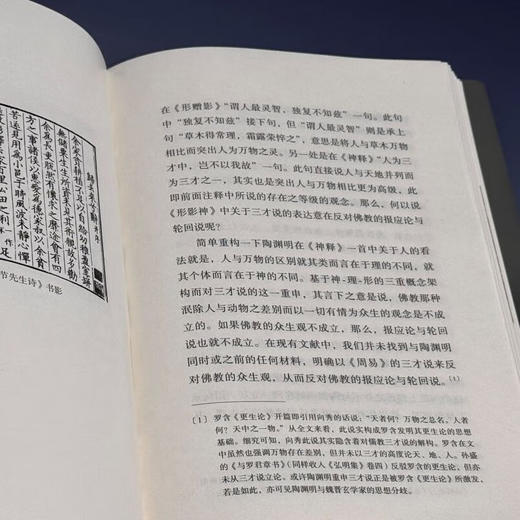 歸去來兮辭并序
余家貧耕植不足以自給幼稚盈室瓶
無儲粟生生所資未見其術親故多勸
余爲長吏脫然有懷求之靡途會有四
方之事諸侯以惠愛爲德家叔以余貧
苦遂見用爲小邑于時風波未靜心憚
节先生诗》书影
在《形赠影》“谓人最灵智，独复不知兹”一句。此句
中“独复不知兹”接下句，但“谓人最灵智”则是承上
句“草木得常理，霜露荣悴之”，意思是将人与草木万物
相比而突出人为万物之灵。另一处是在《神释》“人为三
才中，岂不以我故”一句。此句直接说人与天地并列而
为三才之一，其实也是突出人与万物相比更为高等，此
即前面注释中所说的存在之等级的观念。那么，何以说
《形影神》中关于三才说的表达意在反对佛教的报应论与
轮回说呢？
简单重构一下陶渊明在《神释》一首中关于人的看
法就是，人与万物的区别就其类而言在于理的不同，就
其个体而言在于神的不同。基于神-理-形的三重概念架
构而对三才说的这一重申，其言下之意是说，佛教那种
泯除人与动物之差别而以一切有情为众生的观念是不成
立的。如果佛教的众生观不成立，那么，报应论与轮回
说也就不成立了。在现有文献中，我们并未找到与陶渊明
同时或之前的任何材料，明确以《周易》的三才说来反
对佛教的众生观，从而反对佛教的报应论与轮回说。〔1〕
〔1〕罗含《更生论》开篇即引用向秀的话说：“天者何？万物之总名。人者
何？天中之一物。”从全文来看，此说实构成罗含发明其更生论的思想
基础。细究可知，向秀此说其实隐含着对儒教三才说的解构。罗含在文
中虽然也强调万物存在差别，但并未以三才的高度论天、地、人。孙盛
的《与罗君章书》（同样收入《弘明集》卷四）反驳罗含的更生论，但亦
未从三才说立论。或许陶渊明重申三才说正是被罗含《更生论》所激发，
若是如此，亦可见陶渊明与魏晋玄学家的思想分歧。